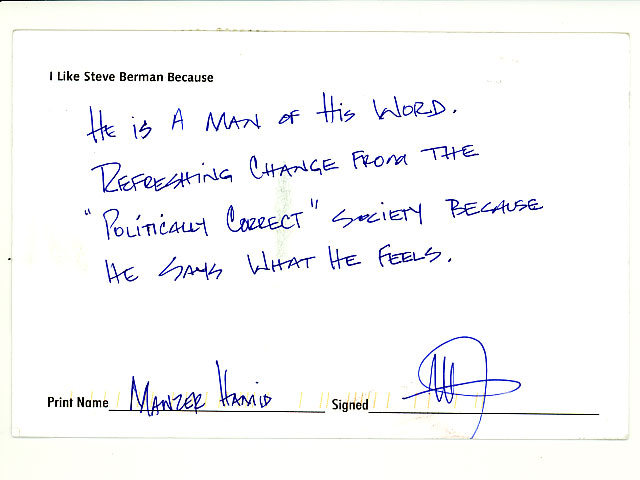 I Like Steve Berman Because
He is A Man of His Word.
Refreshing Change From The
"Politically Correct" Society Because
He Says What He Feels.
Print Name Manzer Hamid Signed